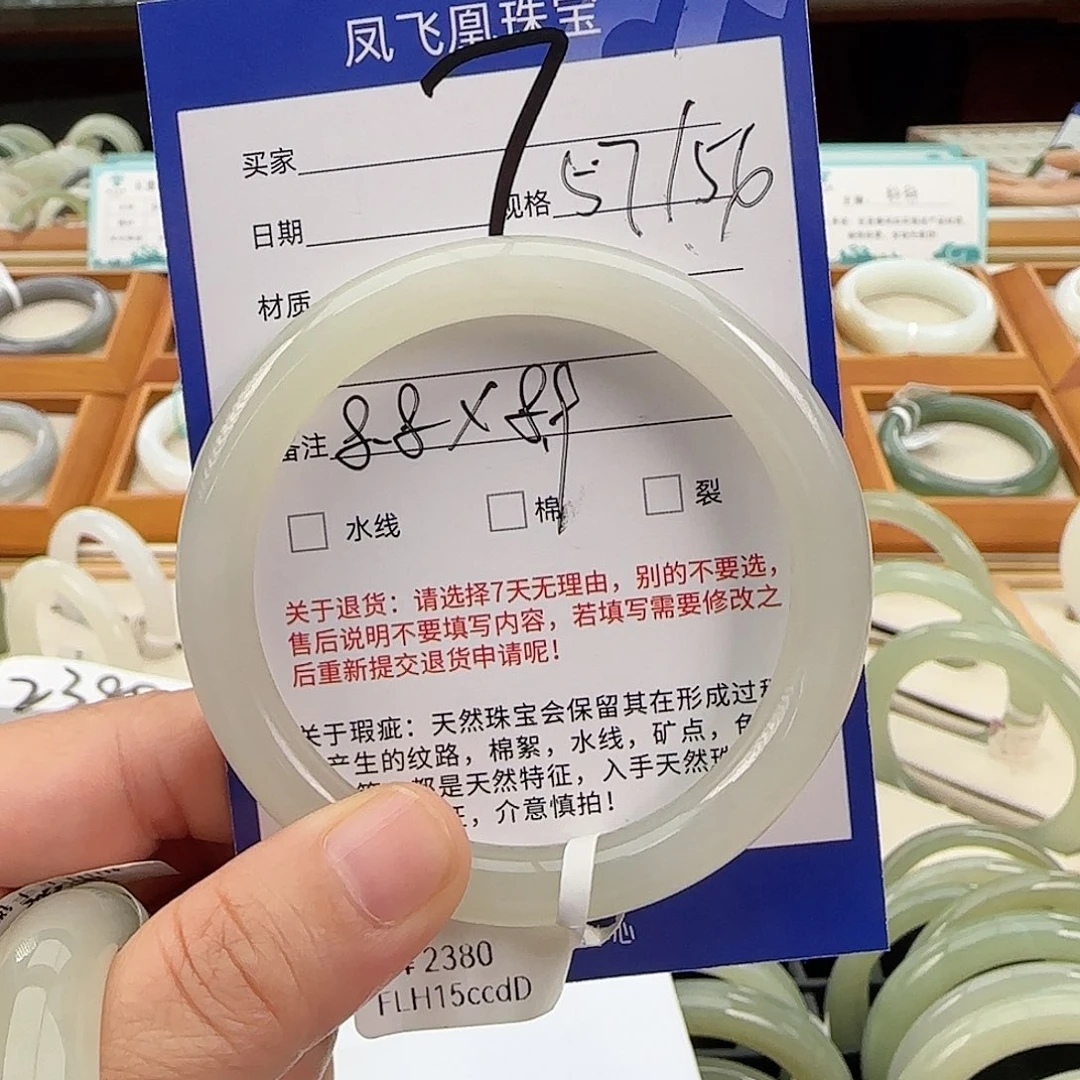 凤飞凰珠宝
7
买家
规格 57/56
日期
材质
备注 8.8×8.9
水线 棉 裂
关于退货：请选择7天无理由，别的不要选，
售后说明不要填写内容，若填写需要修改之
后重新提交退货申请呢！
关于瑕疵：天然珠宝会保留其在形成过程
产生的纹路，棉絮，水线，矿点，色
都是天然特征，入手天然珠
介意慎拍！
心
¥2380
FLH15ccdD
2380